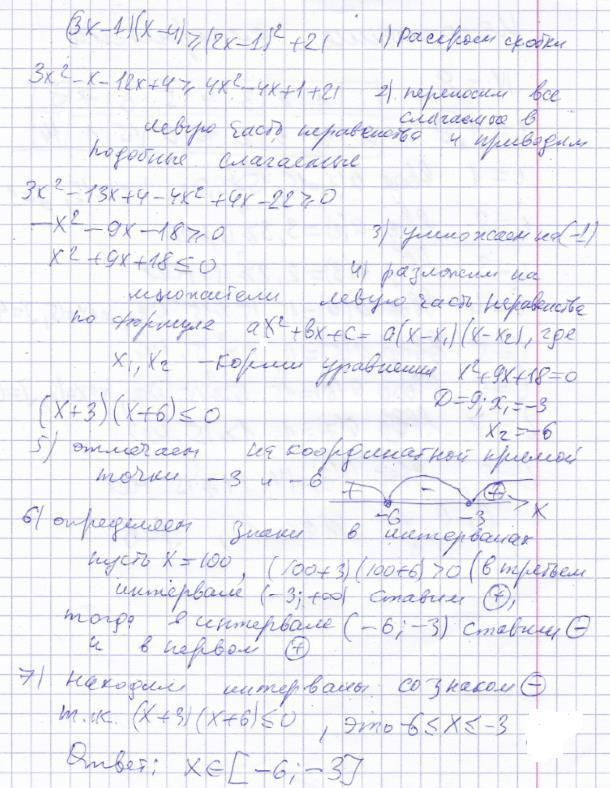 (3x-1)(x-4)≥(2x-1)²+21 1) Раскроем скобки
3x²-x-12x+4≥4x²-4x+1+21 2) переносим все
слагаемые в
левую часть неравенства и приводим
подобные слагаемые
3x²-13x+4-4x²+4x-22≥0
-x²-9x-18≥0 3) умножаем на (-1)
x²+9x+18≤0 4) разложим на
множители левую часть неравенства
по формуле ax²+bx+c=a(x-x₁)(x-x₂), где
x₁, x₂ - корни уравнения x²+9x+18=0
D=9; x₁=-3
(x+3)(x+6)≤0 x₂=-6
5) отмечаем на координатной прямой
точки -3 и -6 + - +
-6 -3 x
6) определяем знаки в интервалах
пусть x=100, (100+3)(100+6)>0 (в третьем
интервале (-3;+∞) ставим +,
тогда в интервале (-6;-3) ставим -
и в первом +
7) Находим интервалы со знаком -
т.к. (x+3)(x+6)≤0, это -6≤x≤-3
Ответ: x∈[-6;-3]